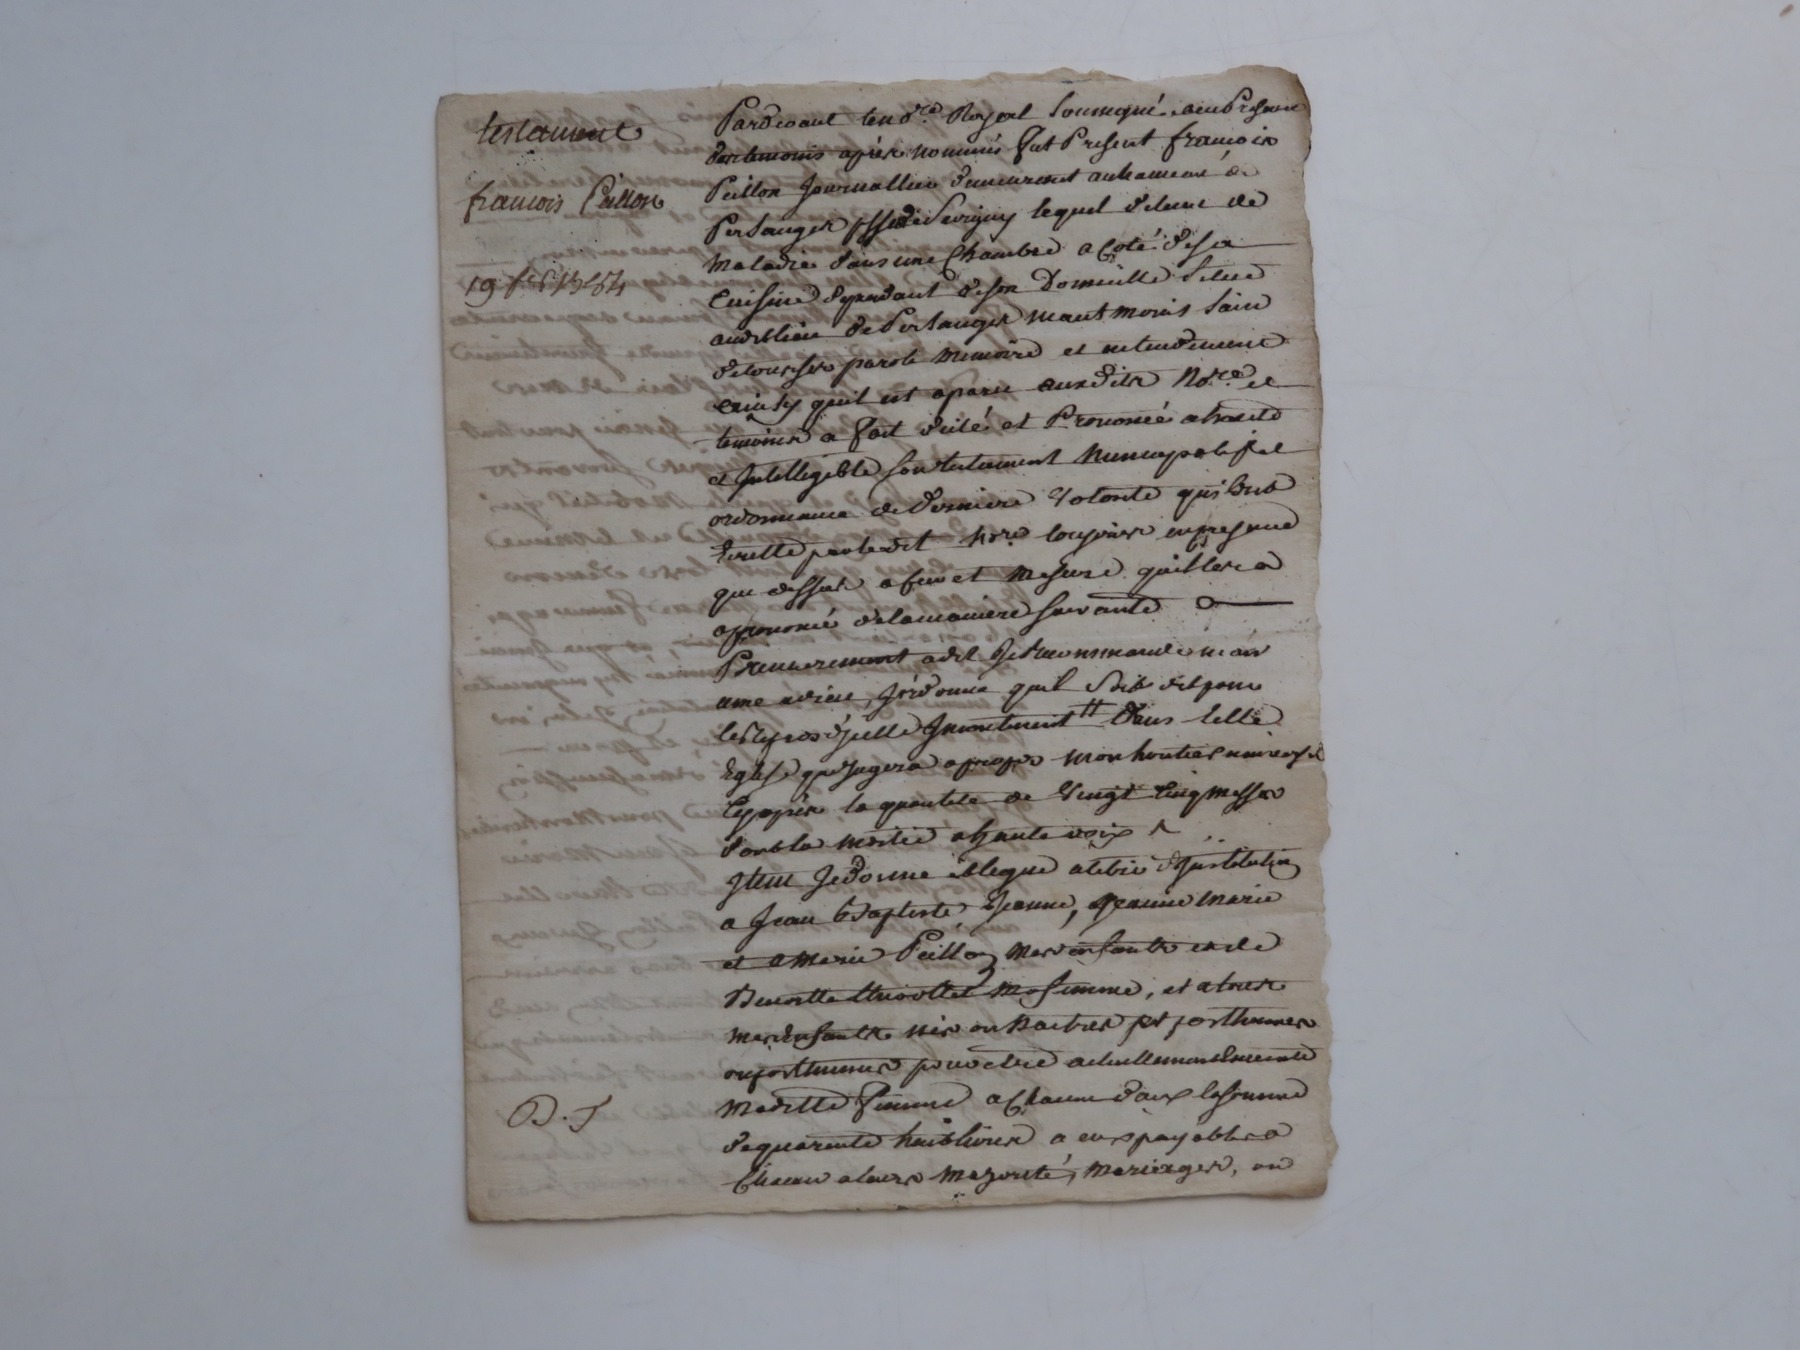 testament
françois Peillon
19
Pardevant le no.re Royal Soussigné, et en Presence
des temoins après nommés fut Present françois
Peillon Journallier demeurant au hameau de
Persanges psse de Sevigny lequel detenu de
maladie dans une Chambre a Coté de sa
Cuisine dependant de son Domicille situé
audit lieu de Persanges neantmoins sain
de tous ses parole memoire et entendement
ainsy quil est aparu auxdits No.re et
temoins a fait dicté et Prononcé a haute
et Intelligible son testament Nuncupatif et
ordonnance de derniere volonte qui a été
Ecritte par ledit No.re toujours en presence
que dessus a fur et mesure quil les a
prononcé de la maniere suivante
Premierement a dit Je Recommande mon
ame a dieu, J'ordonne quil soit dit pour
le Repos d'jcelle Jncontinent dans telle
Eglise que Jugera a propos mon heritier universel
cy après la quantité de vingt cinq messes
dont la moitié a haute voix
Jtem Je donne et legue a titre d'Institution
a Jean Baptiste, Jeanne, Jeanne Marie
et a Marie Peillon mes enfants et de
Benoitte ma femme, et a tous
mes enfants nés ou a naitres posthumes
ou posthumes pour etre actuellement enceinte
maditte femme a Chacun d'eux la somme
de quarente huit livres a eux payables a
Chacun a leurs majorité, mariages, ou
D. T